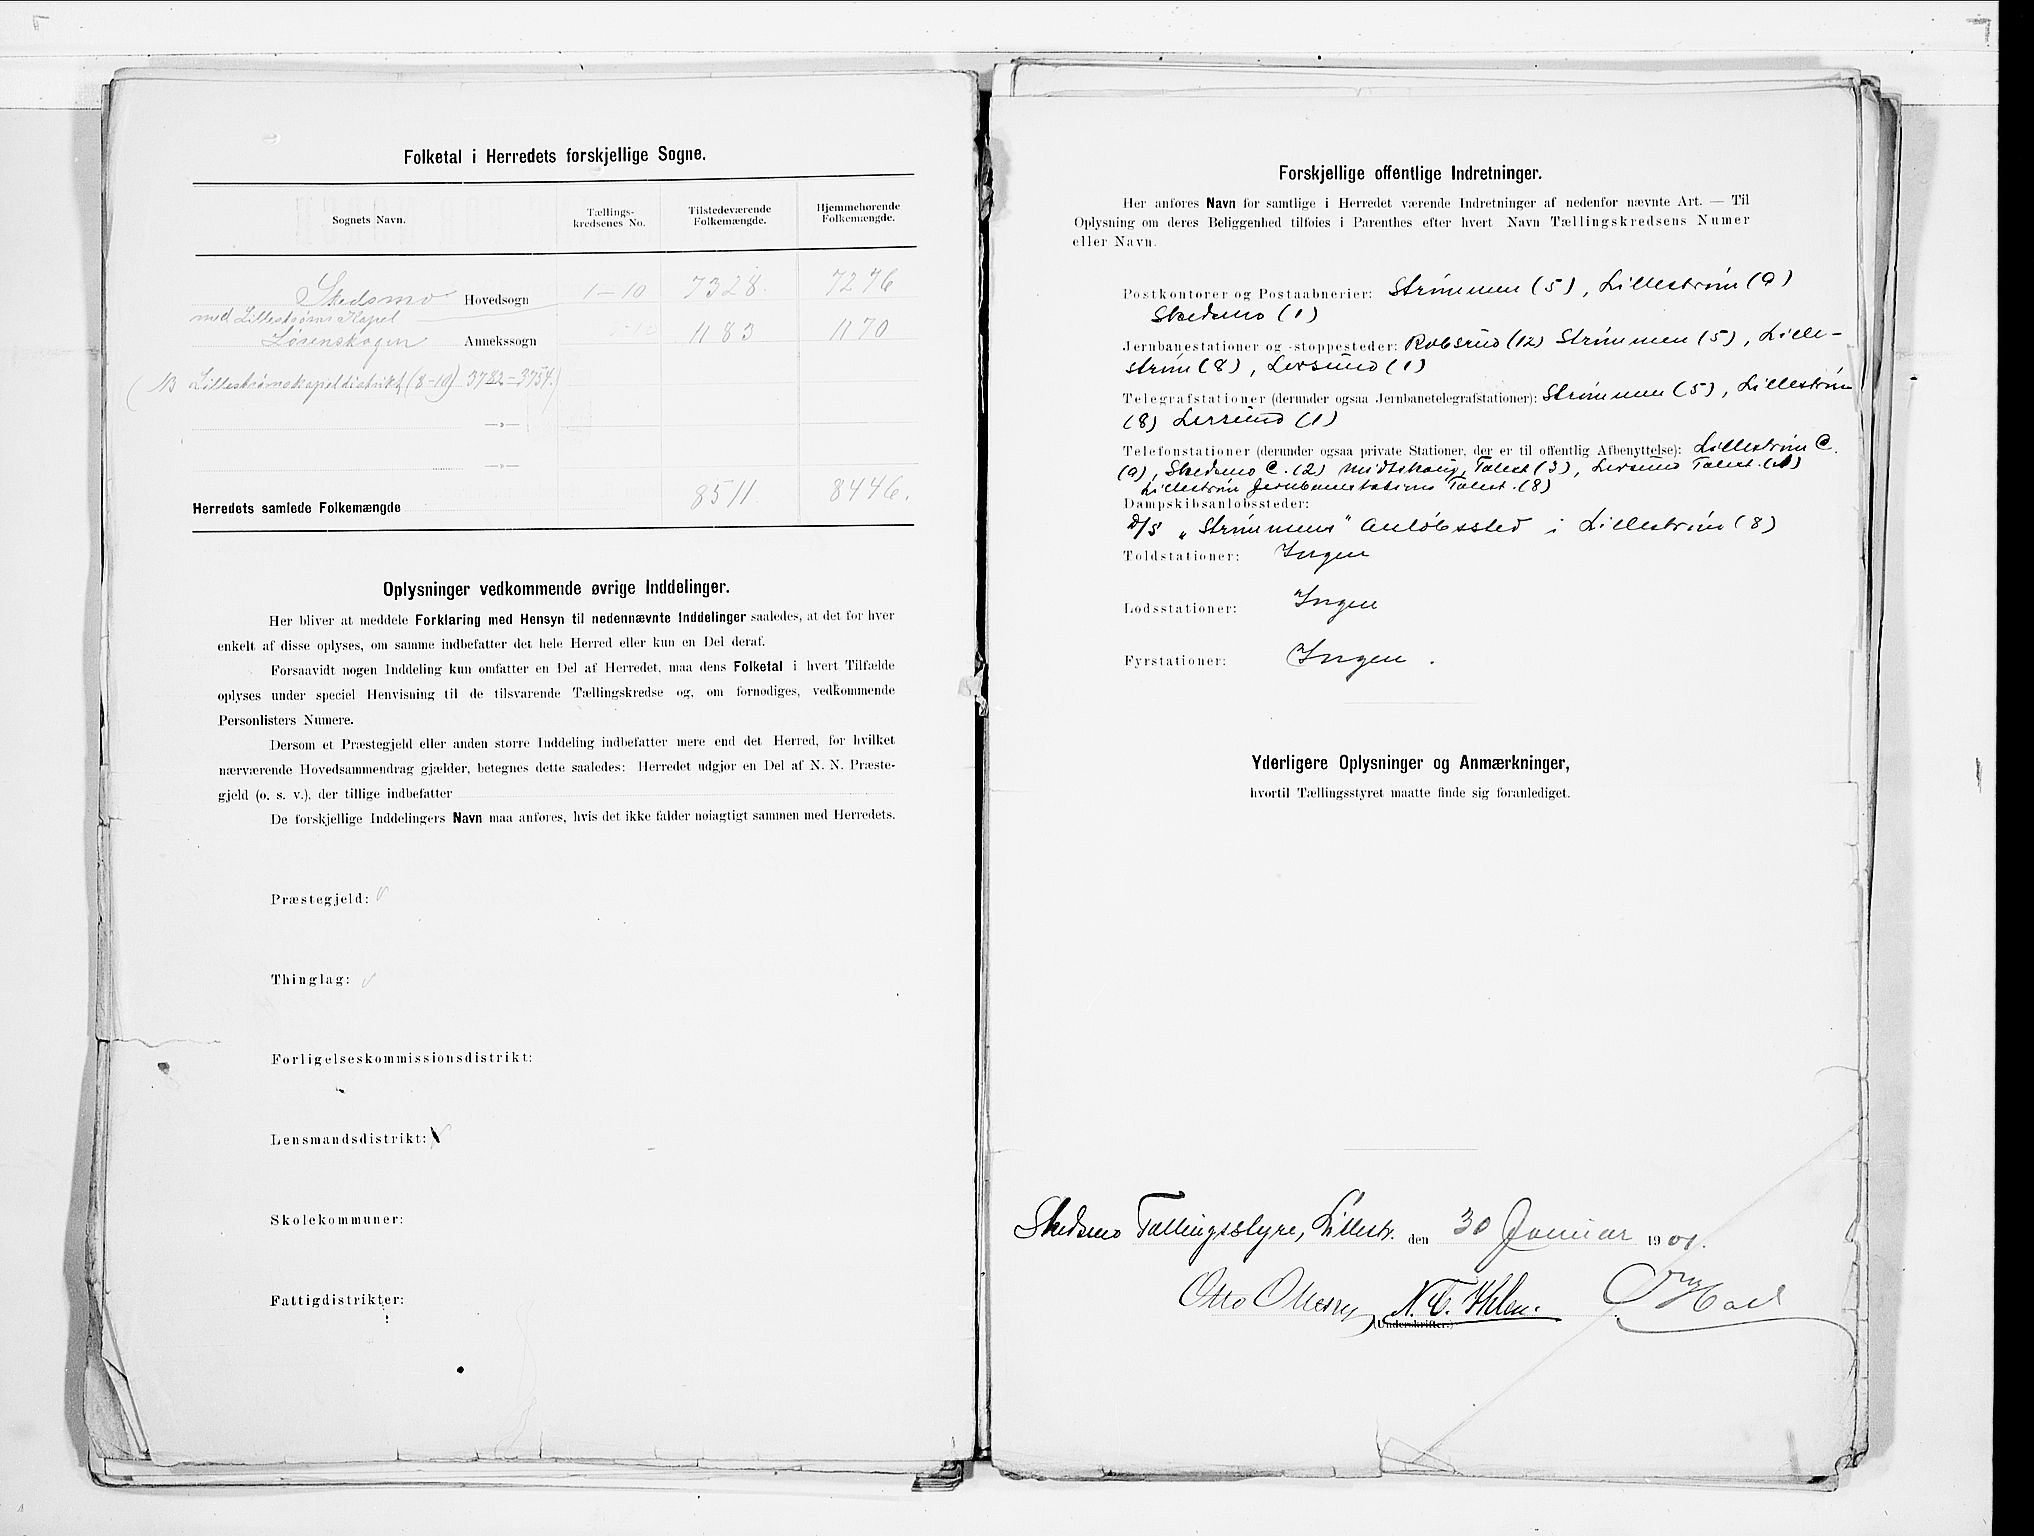 Folketal i Herredets forskjellige Sogne.
Sognets Navn.
Tællings-
kredsenes No.
Tilstedeværende
Folkemængde.
Hjemmehørende
Folkemængde.
Skedsmo Hovedsogn 1-10 7328. 7276
med Lillestrøms Kapel
Lørenskogen Annekssogn 1183 1170
(NB Lillestrømskapeldistrikt (8-10) 3782=3754.)
—»—
—»—
Herredets samlede Folkemængde 8511 8446.
Oplysninger vedkommende øvrige Inddelinger.
Her bliver at meddele Forklaring med Hensyn til nedennævnte Inddelinger saaledes, at det for hver
enkelt af disse oplyses, om samme indbefatter det hele Herred eller kun en Del deraf.
Forsaavidt nogen Inddeling kun omfatter en Del af Herredet, maa dens Folketal i hvert Tilfælde
oplyses under speciel Henvisning til de tilsvarende Tællingskredse og, om fornødiges, vedkommende
Personlisters Numere.
Dersom et Præstegjeld eller anden større Inddeling indbefatter mere end det Herred, for hvilket
nærværende Hovedsammendrag gjælder, betegnes dette saaledes: Herredet udgjør en Del af N. N. Præste-
gjeld (o. s. v.), der tillige indbefatter
De forskjellige Inddelingers Navn maa anføres, hvis det ikke falder nøiagtigt sammen med Herredets.
Præstegjeld:
Thinglag:
Forligelseskommissionsdistrikt:
Lensmandsdistrikt:
Skolekommuner:
Fattigdistrikter:
Forskjellige offentlige Indretninger.
Her anføres Navn for samtlige i Herredet værende Indretninger af nedenfor nævnte Art. — Til
Oplysning om deres Beliggenhed tilføies i Parenthes efter hvert Navn Tællingskredsens Numer
eller Navn.
Postkontorer og Postaabnerier: Strømmen (5), Lillestrøm (9)
Skedsmo (1)
Jernbanestationer og -stoppesteder: Robsrud (12) Strømmen (5), Lille-
strøm (8), Lersund (1)
Telegrafstationer (derunder ogsaa Jernbanetelegrafstationer): Strømmen (5), Lillestrøm
(8) Lersund (1)
Telefonstationer (derunder ogsaa private Stationer, der er til offentlig Afbenyttelse): Lillestrøm C.
(9), Skedsmo C. (2) Midtskoug Talest (3), Lersund Talest. (1)
Lillestrøm Jernbanestations Talest. (8)
Dampskibsanløbssteder:
D/S „Strømmens" Anløbssted i Lillestrøm (8)
Toldstationer: Ingen
Lodsstationer: Ingen
Fyrstationer: Ingen.
Yderligere Oplysninger og Anmærkninger,
hvortil Tællingsstyret maatte finde sig foranlediget.
Skedsmo Tællingsstyre, Lillestr. den 30 Januar 1901.
Otto Olessen, N. T. Ihlen.
(Underskrifter.)